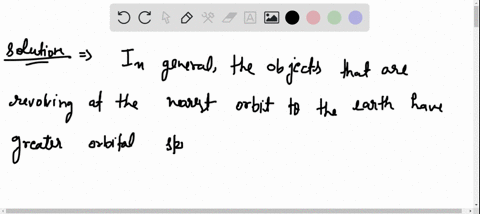 Solution => In general, the objects that are
revolving at the nearst orbit to the earth have
greater orbital sp